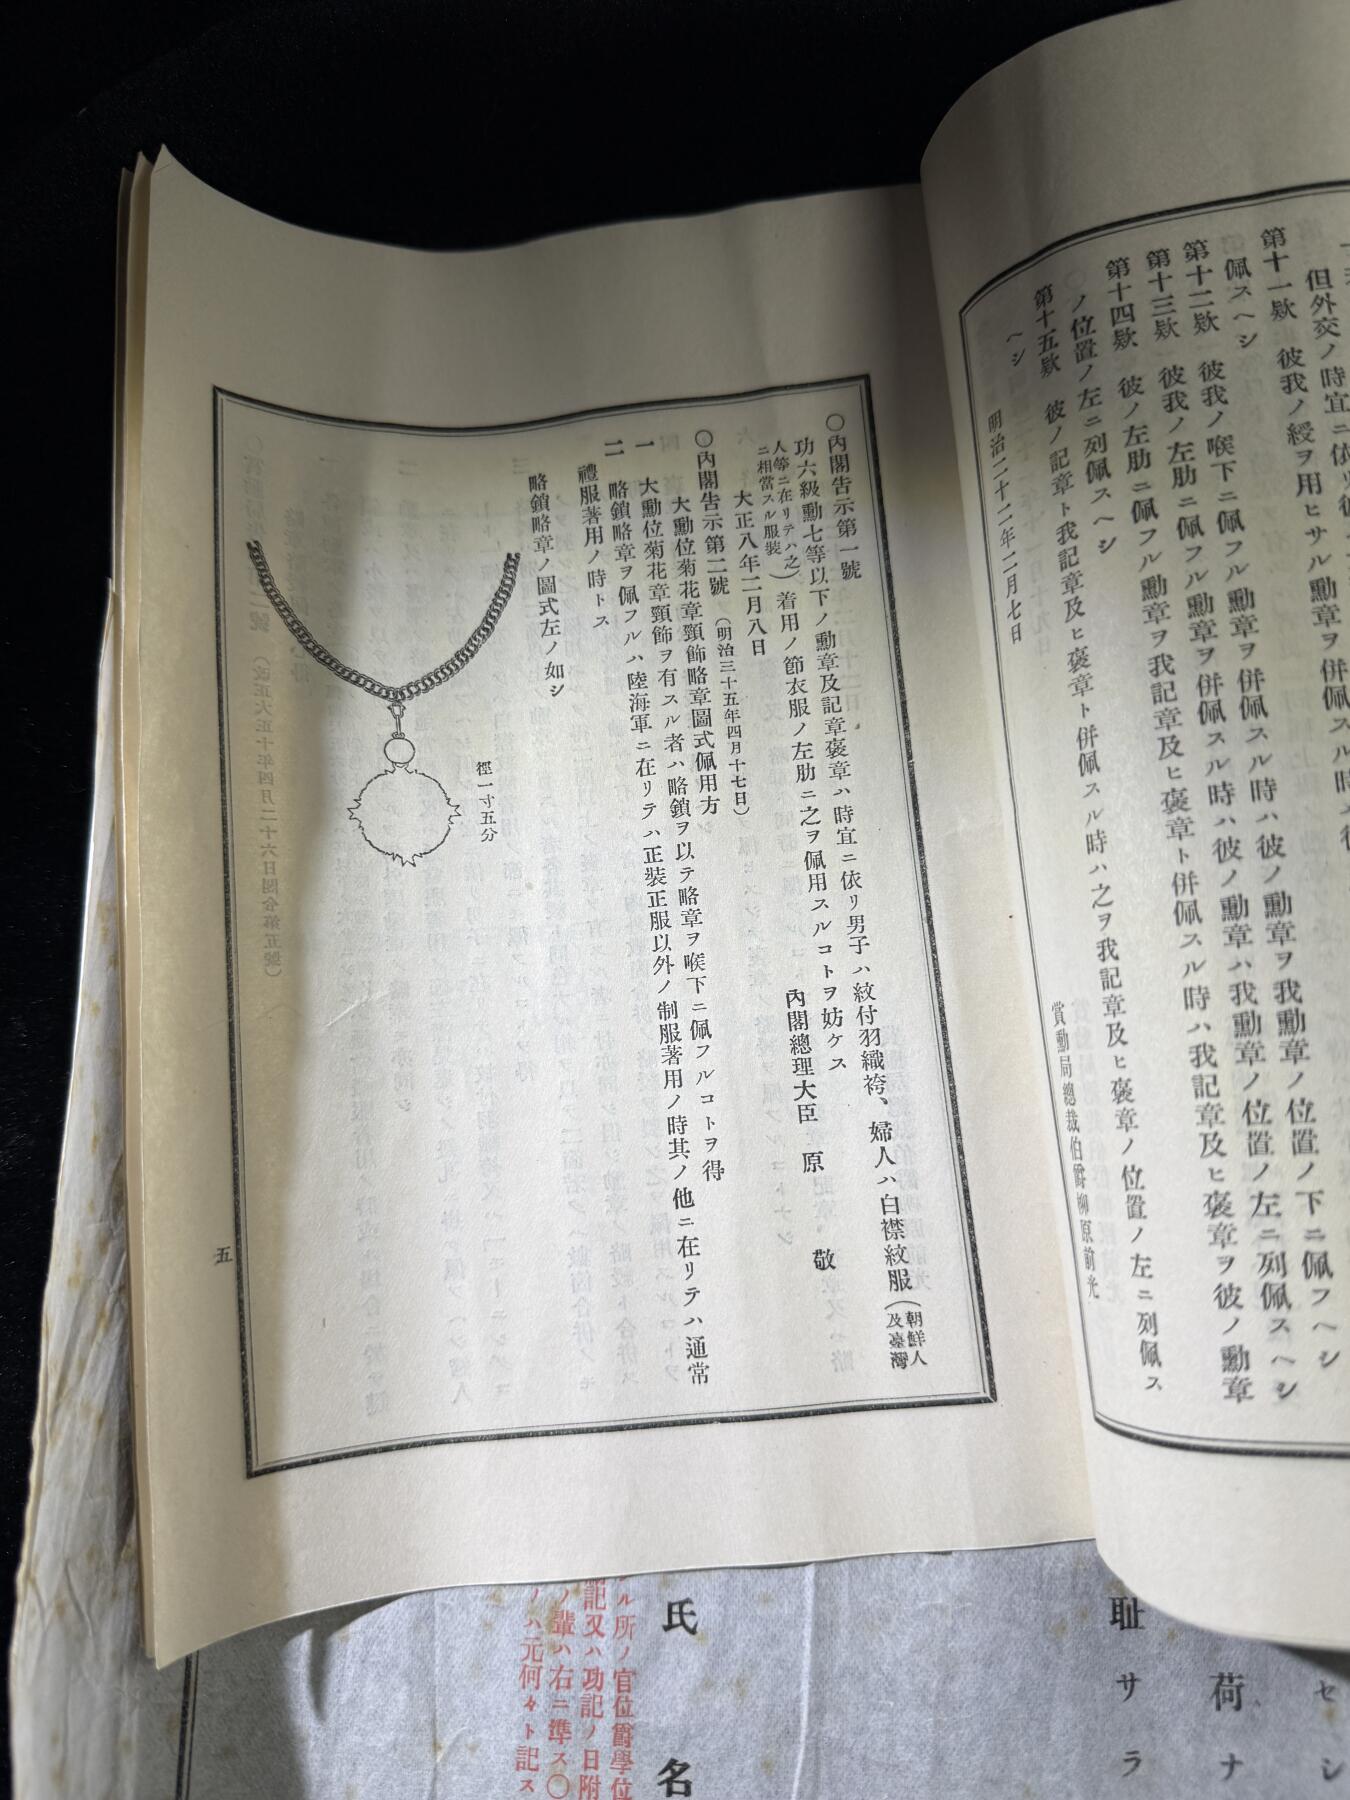 但外交ノ時宜ニ依リ
第十一欵　彼我ノ綬ヲ用ヒサル勳章ヲ併佩スル時ハ
佩スヘシ
第十二欵　彼我ノ喉下ニ佩フル勳章ヲ併佩スル時ハ彼ノ勳章ヲ我勳章ノ位置ノ下ニ佩フヘシ
第十三欵　彼我ノ左肋ニ佩フル勳章ヲ併佩スル時ハ彼ノ勳章ハ我勳章ノ位置ノ左ニ列佩スヘシ
第十四欵　彼ノ左肋ニ佩フル勳章ヲ我記章及ヒ褒章ト併佩スル時ハ我記章及ヒ褒章ヲ彼ノ勳章
ノ位置ノ左ニ列佩スヘシ
第十五欵　彼ノ記章ト我記章及ヒ褒章ト併佩スル時ハ之ヲ我記章及ヒ褒章ノ位置ノ左ニ列佩ス
ヘシ
明治二十二年二月七日
賞勳局總裁伯爵柳原前光
〇內閣告示第一號
功六級勳七等以下ノ勳章及記章褒章ハ時宜ニ依リ男子ハ紋付羽織袴、婦人ハ白襟紋服（朝鮮人及臺灣
人等ニ在リテハ之ニ相當スル服裝）着用ノ節衣服ノ左肋ニ之ヲ佩用スルコトヲ妨ケス
大正八年二月八日
內閣總理大臣　原　敬
〇內閣告示第二號（明治三十五年四月十七日）
大勳位菊花章頸飾略章圖式佩用方
一　大勳位菊花章頸飾ヲ有スル者ハ略鎖ヲ以テ略章ヲ喉下ニ佩フルコトヲ得
二　略鎖略章ヲ佩フルハ陸海軍ニ在リテハ正裝正服以外ノ制服著用ノ時其ノ他ニ在リテハ通常
禮服著用ノ時トス
略鎖略章ノ圖式左ノ如シ
徑一寸五分
五
セシ
荷ナ
耻サラ
氏名
ル所ノ官位爵學位
記又ハ功記ノ日附
ノ輩ハ右ニ準ス〇
ノハ元何々ト記ス